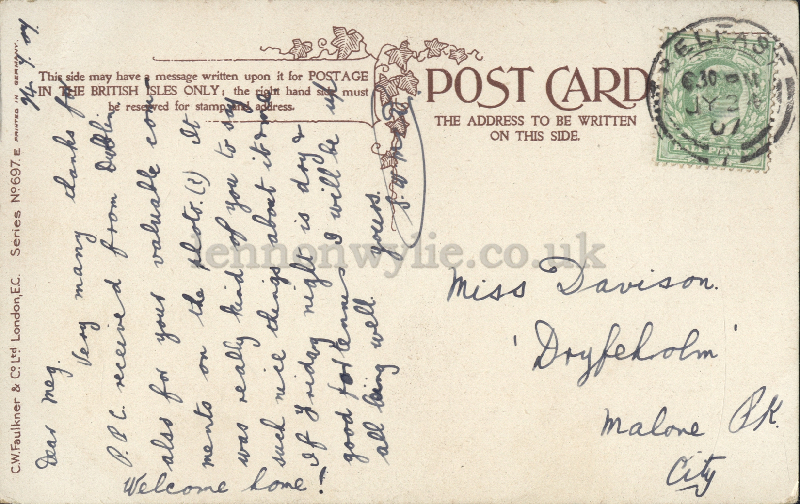 This side may have a message written upon it for POSTAGE
IN THE BRITISH ISLES ONLY; the right hand side must
be reserved for stamp and address.
POST CARD
THE ADDRESS TO BE WRITTEN
ON THIS SIDE.
C.W. Faulkner & Co. Ltd London, E.C. Series No 697. E PRINTED IN GERMANY.
Dear Meg.
Very many thanks for
P.P.C. received from Dublin
also for your valuable com-
ments on the photo. (?) It
was really kind of you to say
such nice things about it &
If Friday night is dry &
good for tennis I will be up
all being well. yours.
Welcome home! -
Miss Davison.
'Dryfeholm'
Malone PK.
City
BELFAST
6.30 PM
JY 24
07
lennonwylie.co.uk